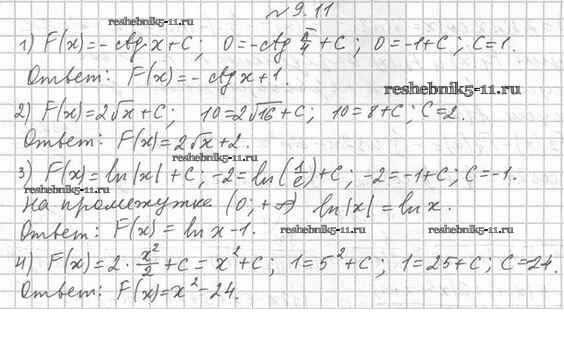 № 9.11
reshebnik5-11.ru
1) F(x)=-ctg x+C; 0=-ctg π/4+C; 0=-1+C; C=1.
Ответ: F(x)=-ctg x+1.
reshebnik5-11.ru
2) F(x)=2√x+C; 10=2√16+C; 10=8+C; C=2.
Ответ: F(x)=2√x+2.
reshebnik5-11.ru
3) F(x)=ln|x|+C; -2=ln(1/e)+C; -2=-1+C; C=-1.
reshebnik5-11.ru
На промежутке (0;+∞) ln|x|=ln x.
Ответ: F(x)=ln x-1.
reshebnik5-11.ru
reshebnik5-11.ru
4) F(x)=2·x²/2+C=x²+C; 1=5²+C; 1=25+C; C=24.
Ответ: F(x)=x²-24.